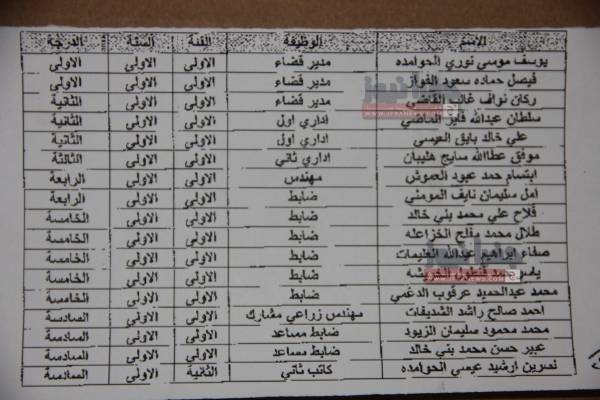 الاسم الوظيفة الفئة السنة الدرجة
يوسف موسى نوري الحوامده مدير قضاء الاولى الاولى الاولى
فيصل حماده سعود الفواز مدير قضاء الاولى الاولى الاولى
ركان نواف غالب القاضي مدير قضاء الاولى الاولى الثانية
سلطان عبدالله فايز الماضي اداري اول الاولى الاولى الثانية
علي خالد بايق العيسي اداري اول الاولى الاولى الثانية
موفق عطاالله سايج هليبان اداري ثاني الاولى الاولى الثالثة
ابتسام حمد عبود العموش مهندس الاولى الاولى الرابعة
امل سليمان نايف المومني ضابط الاولى الاولى الرابعة
فلاح علي محمد بني خالد ضابط الاولى الاولى الخامسة
طلال محمد مفلح الخزاعله ضابط الاولى الاولى الخامسة
صفاء ابراهيم عبدالله العليمات ضابط الاولى الاولى الخامسة
ياسر حمد ضابط الاولى الاولى الخامسة
محمد عبدالحميد عرقوب الدغمي ضابط الاولى الاولى الخامسة
احمد صالح راشد الشديفات مهندس زراعي مشارك الاولى الاولى السادسة
محمد محمود سليمان الزيود ضابط مساعد الاولى الاولى السادسة
عبير حسن محمد بني خالد ضابط مساعد الاولى الاولى السادسة
نسرين ارشيد عيسى الحوامده كاتب ثاني الثانية الاولى السادسة